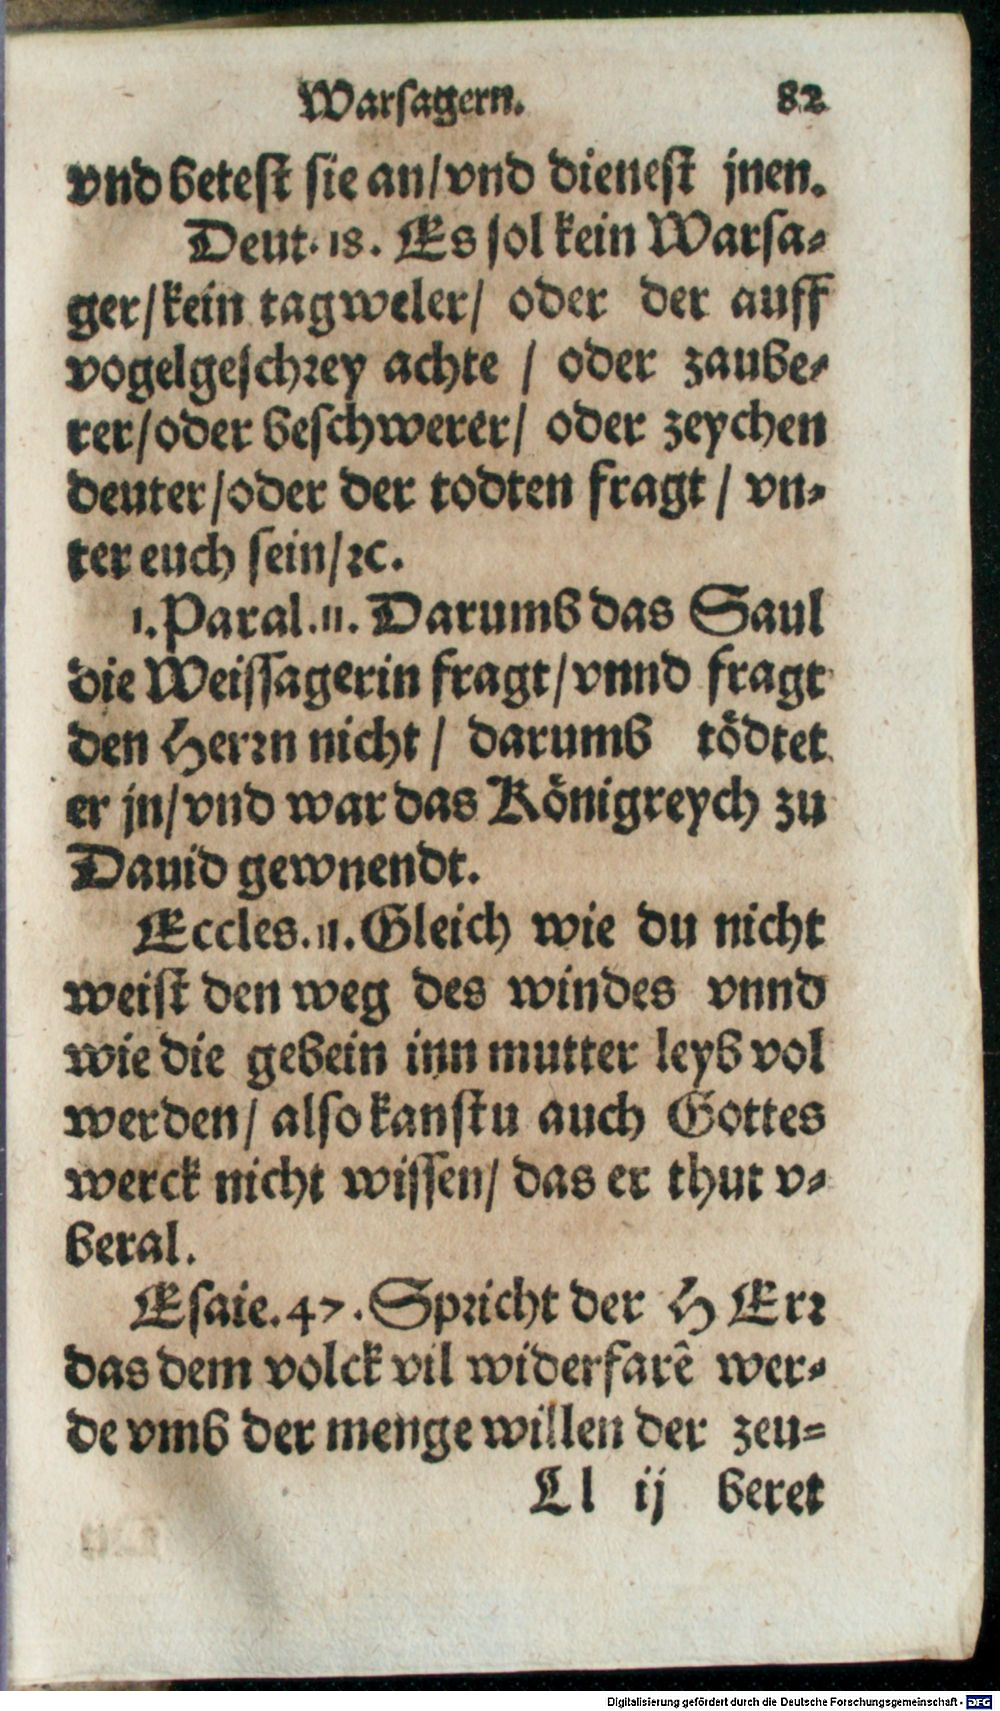 Warsagern. 82
vnd betest sie an/vnd dienest jnen.
Deut. 18. Es sol kein Warsa-
ger/kein tagweler/ oder der auff
vogelgeschrey achte / oder zaube-
rer/oder beschwerer/ oder zeychen
deuter/oder der todten fragt / vn-
ter euch sein/ꝛc.
1. Paral. 11. Darumb das Saul
die Weissagerin fragt/vnnd fragt
den Herrn nicht / darumb tödtet
er jn/vnd war das Königreych zu
Dauid gewnendt.
Eccles. 11. Gleich wie du nicht
weist den weg des windes vnnd
wie die gebein inn mutter leyb vol
werden/ also kanstu auch Gottes
werck nicht wissen/ das er thut v-
beral.
Esaie. 47. Spricht der HErr
das dem volck vil widerfarê wer-
de vmb der menge willen der zeu=
Ll ij beret
Digitalisierung gefördert durch die Deutsche Forschungsgemeinschaft - DFG